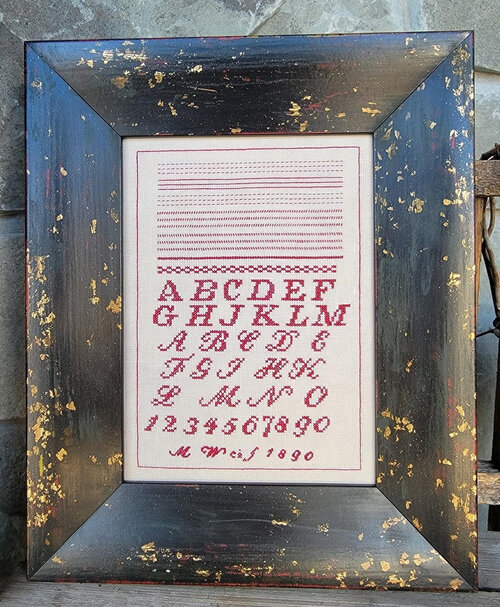 ABCDEF
GHJKLM
A B C D E
F G I H K
L M N O
1234567890
M 1890